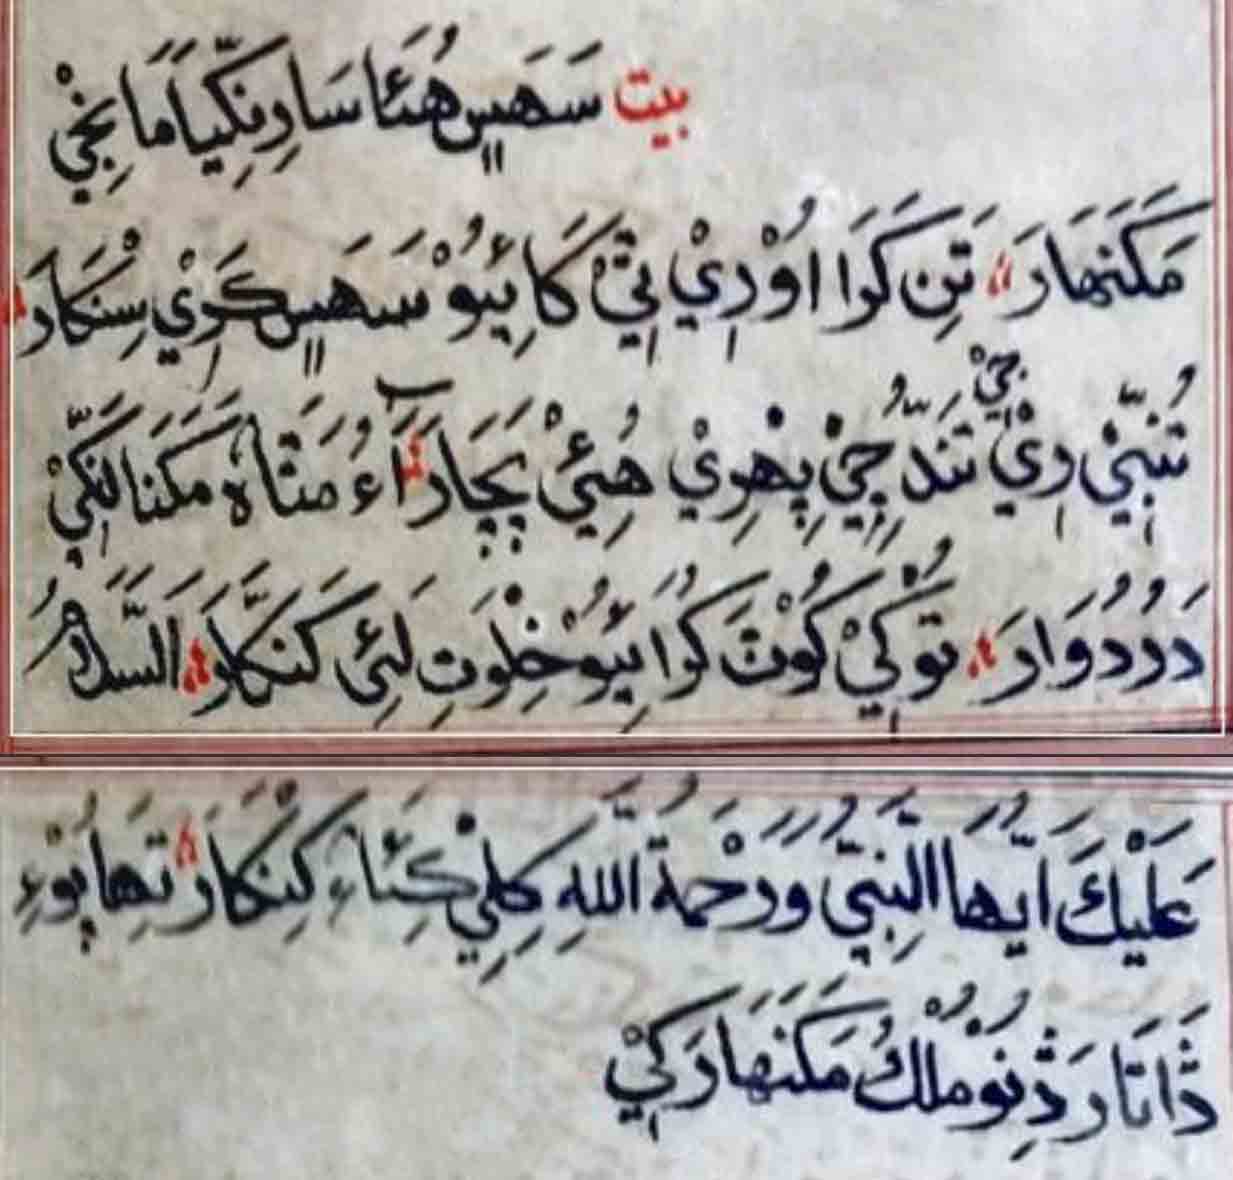 بيت سَهَسِ هُئَا سَاوِنکِّيَا مَا نجِيْ
مَکنهَارَ، تَنِ کَرَا اوُڊِيْ تِيْ کَا پِئُوْ سَهَسِ ڪَرِيْ سِنْکَارَ
تُنبِّيْ رِيْ تَنْدُ جِيْ پِهْرِيْ هُئِيْ پَچَارَ، آءُ مَٿَاهٗ مَکنَا لنکِيْ
جيْ
دَرُ دُوَارَ، توُ کِيْ کوُٺَ کَرَا پِئُوْ خِلْوَتِ لَئِی کَنکَّارَ، اَلسَّلَامُ
عَلَيْكَ اَيُّهَا النَّبِيُّ وَرَحْمَةُ اللّٰهِ کِلِيْ ڪِئَاءِ کِنْکَارَ، تهَا پوْءِ
ڏَاتَارَ ڏِنوُ مُلْكُ مَکَنهَارَ کِيْ